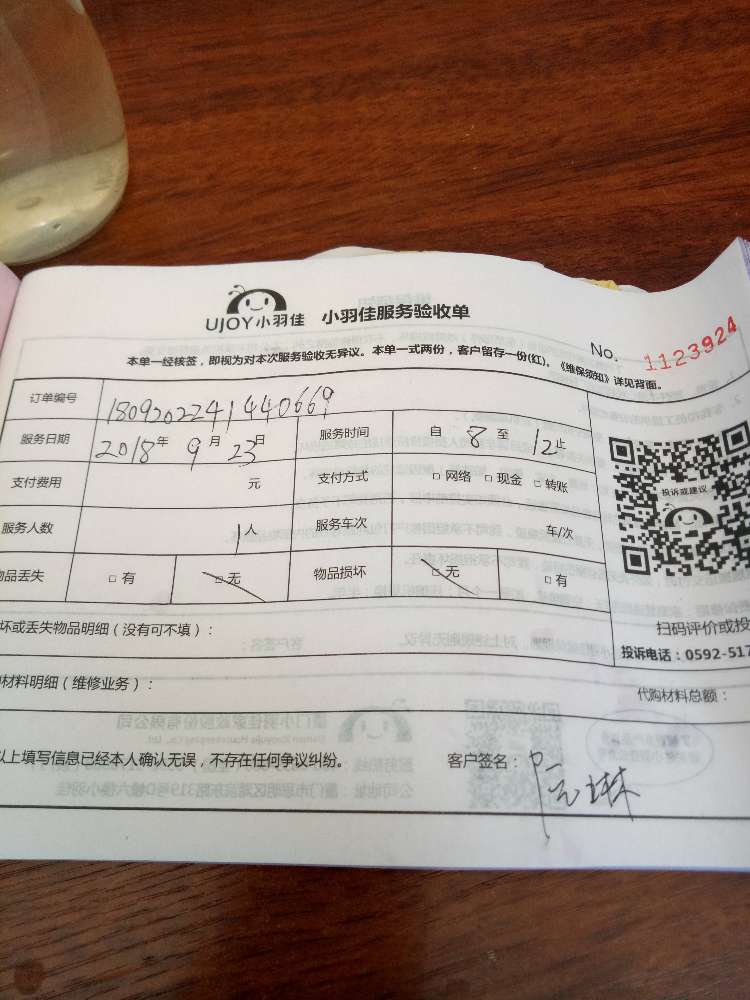 UJOY小羽佳 小羽佳服务验收单
No. 1123924
本单一经核签，即视为对本次服务验收无异议。本单一式两份，客户留存一份(红)。《维保须知》详见背面。
订单编号 1809202241440669
服务日期 2018年 9月 23日 服务时间 自 8 至 12止
支付费用 元 支付方式 □ 网络 □ 现金 □ 转账
服务人数 1人 服务车次 车/次
品丢失 □ 有 □ 无 物品损坏 □ 无 □ 有
投诉或建议
扫码评价或投
投诉电话：0592-517
坏或丢失物品明细（没有可不填）：
材料明细（维修业务）： 代购材料总额：
以上填写信息已经本人确认无误，不存在任何争议纠纷。 客户签名：阮琳